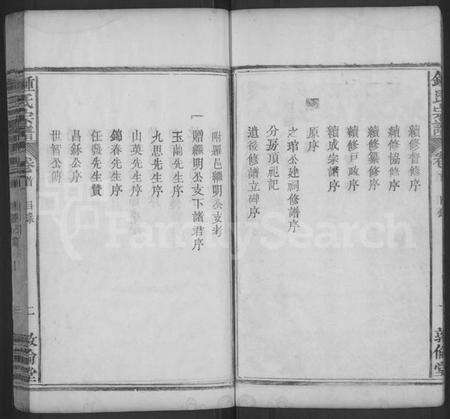 鍾氏宗譜
卷首
目錄
敦倫堂
續修督修序
續修協修序
續修纂修序
續修戶政序
續成宗譜序
原序
之琯公建祠修譜序
分房項祀記
道後修譜立碑序
附羅邑繼明公支考
一贈繼明公支下諸君序
玉衡先生序
九思先生序
山英先生序
錦春先生序
任發先生贊
昌錦公序
世智公傳
鍾氏宗譜
卷首
目錄
二
敦倫堂
FamilySearch